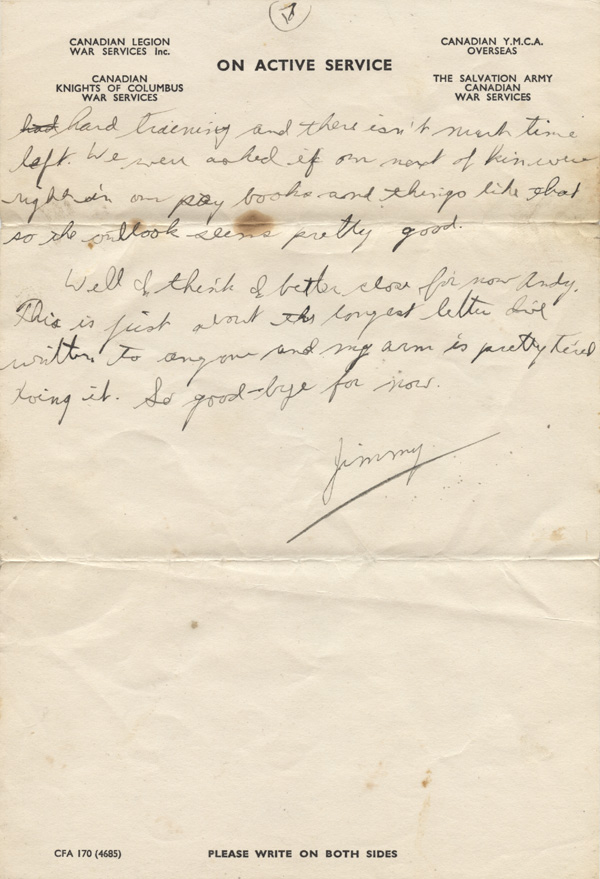 CANADIAN LEGION
WAR SERVICES Inc.
CANADIAN
KNIGHTS OF COLUMBUS
WAR SERVICES
ON ACTIVE SERVICE
CANADIAN Y.M.C.A.
OVERSEAS
THE SALVATION ARMY
CANADIAN
WAR SERVICES
had hard training and there isn't much time
left. We were asked if our next of kin were
right in our pay books and things like that
so the outlook seems pretty good.
Well I think I better close for now Andy.
This is just about the longest letter I've
written to anyone and my arm is pretty tired
doing it. So good-bye for now.
Jimmy
CFA 170 (4685)
PLEASE WRITE ON BOTH SIDES